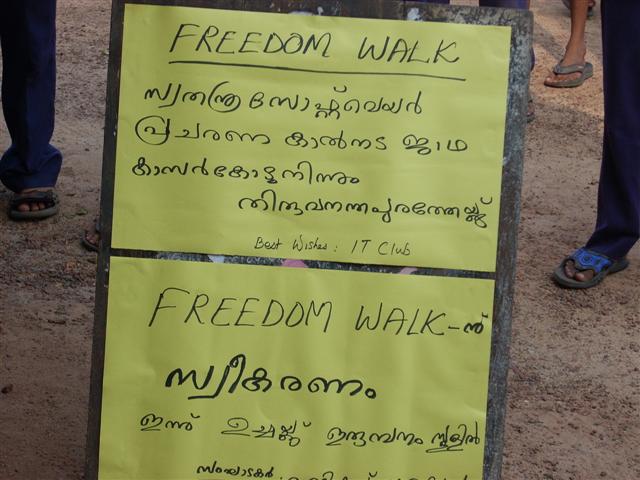 FREEDOM WALK
സ്വതന്ത്ര സോഫ്റ്റ്‌വെയർ
പ്രചരണ കാൽനട ജാഥ
കാസർകോട്ടുനിന്നും
തിരുവനന്തപുരത്തേയ്ക്ക്
Best Wishes: IT Club
FREEDOM WALK-ന്
സ്വീകരണം
ഇന്ന് ഉച്ചയ്ക്ക് ഇരുമ്പനം സ്കൂളിൽ
സംഘാടകർ